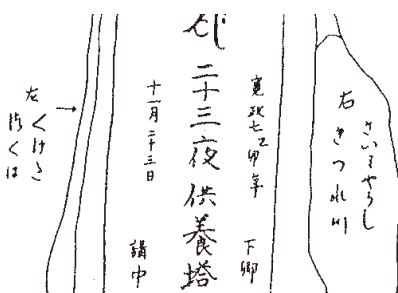 右
さいミやうし
きつれ川
寛政七乙卯年
下郷
二十三夜供養塔
十一月二十三日
講中
左
くけた
つくは